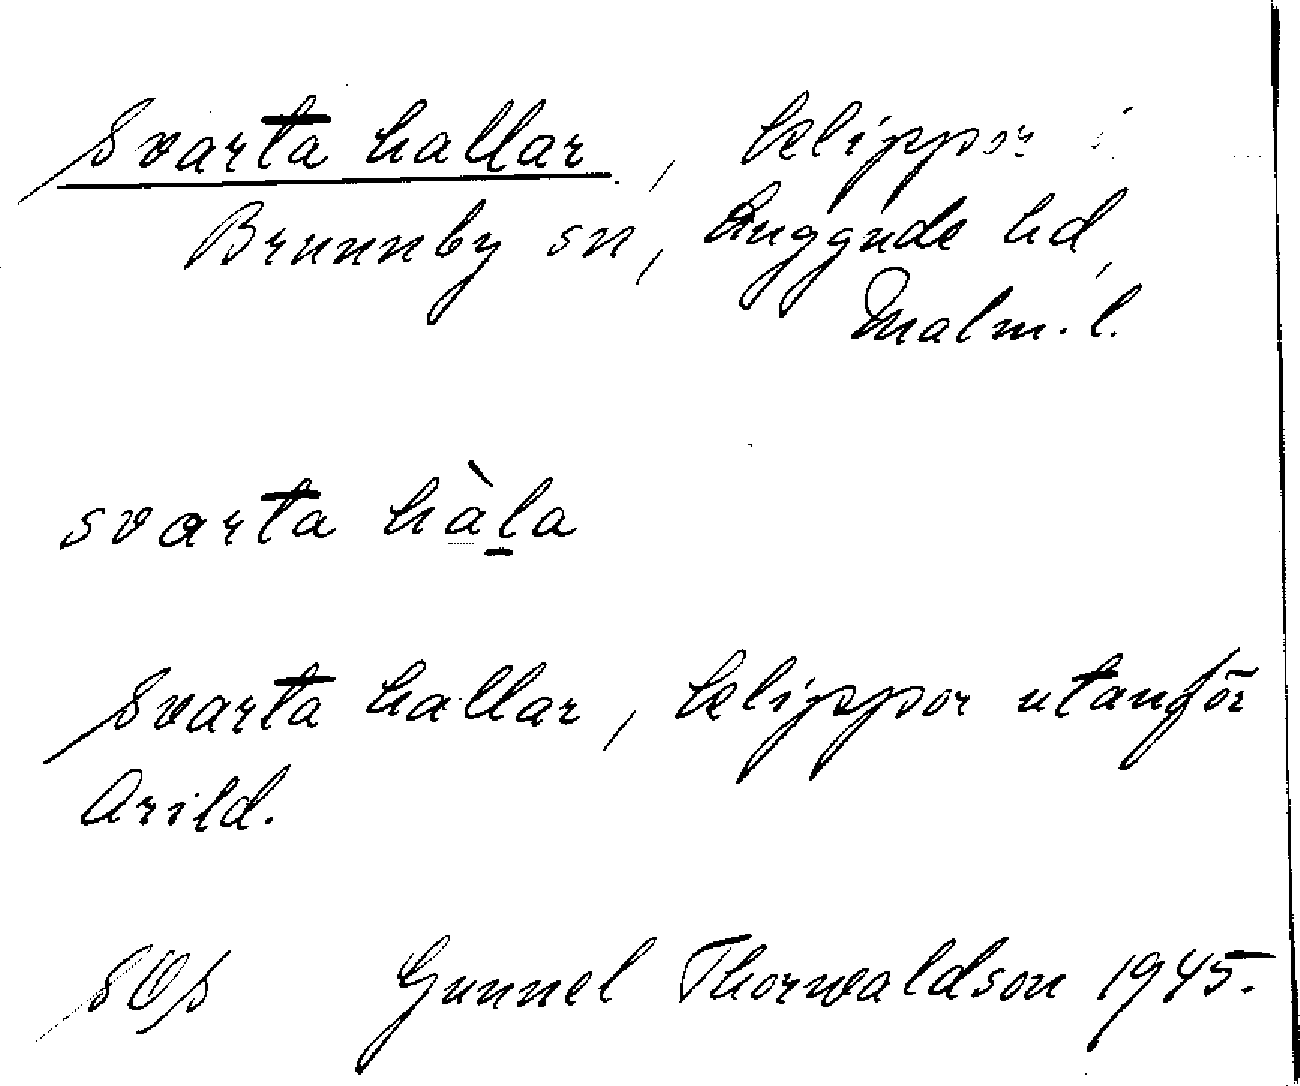 Svarta hallar, klippor i
Brunnby sn, Luggude hd,
Malm. l.
svarta hàl̠a
Svarta hallar, klippor utanför
Arild.
SOS Gunnel Thorwaldson 1945.